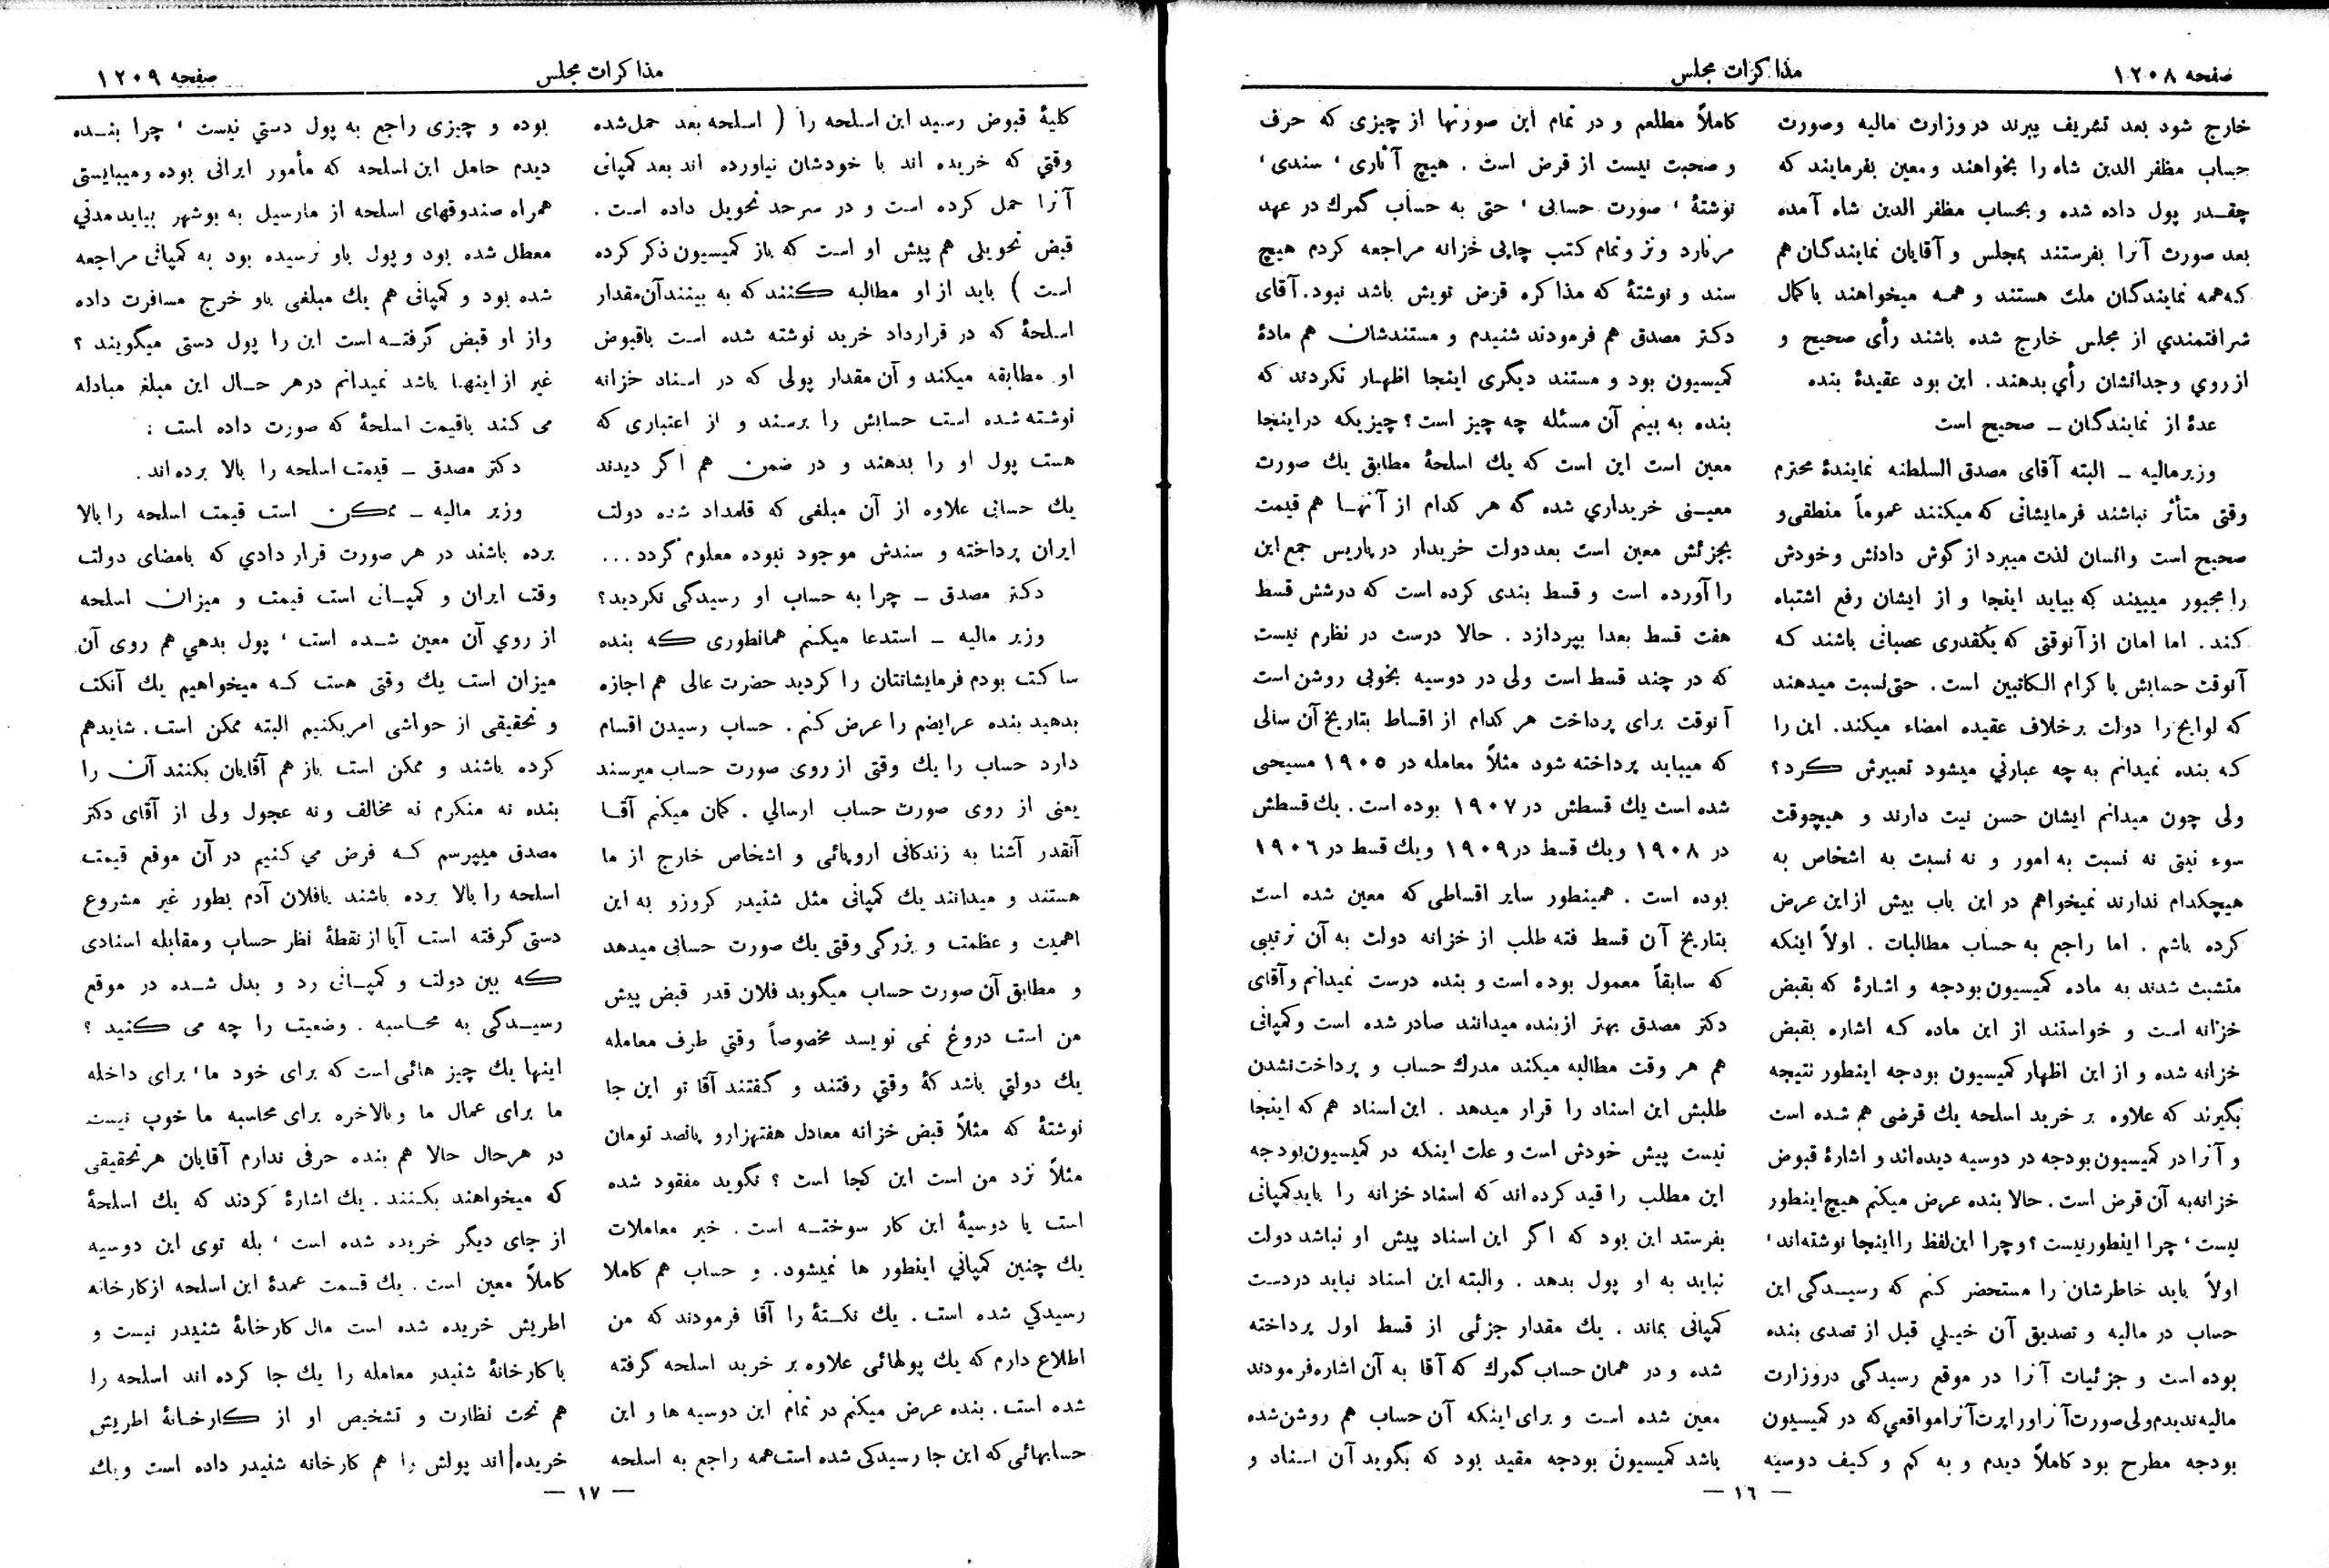 صفحه ۱۲۰۸
مذاکرات مجلس
خارج شود بعد تشریف ببرند در وزارت مالیه وصورت
حساب مظفر الدین شاه را بخواهند و معین بفرمایند که
چقدر پول داده شده و بحساب مظفر الدین شاه آمده
بعد صورت آنرا بفرستند بمجلس و آقایان نمایندگان هم
که همه نمایندگان ملت هستند و همه میخواهند باکمال
شرافتمندي از مجلس خارج شده باشند رأی صحیح و
از روي وجدانشان رأي بدهند. این بود عقیدهٔ بنده
عدهٔ از نمایندگان ـ صحیح است
وزیر مالیه ـ البته آقای مصدق السلطنه نمایندهٔ محترم
وقتی متأثر نباشند فرمایشاتی که میکنند عموماً منطقی و
صحیح است وانسان لذت میبرد از گوش دادنش وخودش
را مجبور میبیند که بیاید اینجا و از ایشان رفع اشتباه
کند. اما امان از آنوقتی که یکقدری عصبانی باشند که
آنوقت حسابش با کرام الکاتبین است. حتی نسبت میدهند
که لوایح را دولت برخلاف عقیده امضاء میکند. این را
که بنده نمیدانم به چه عبارتي میشود تعبیرش کرد؟
ولی چون میدانم ایشان حسن نیت دارند و هیچوقت
سوء نیتی نه نسبت به امور و نه نسبت به اشخاص به
هیچکدام ندارند نمیخواهم در این باب بیش از این عرض
کرده باشم. اما راجع به حساب مطالبات. اولاً اینکه
متشبث شدند به ماده کمیسیون بودجه و اشارهٔ که بقبض
خزانه است و خواستند از این ماده که اشاره بقبض
خزانه شده و از این اظهار کمیسیون بودجه اینطور نتیجه
بگیرند که علاوه بر خرید اسلحه یك قرضی هم شده است
و آنرا در کمیسیون بودجه در دوسیه دیده‌اند و اشارهٔ قبوض
خزانه به آن قرض است. حالا بنده عرض میکنم هیچ اینطور
نیست، چرا اینطور نیست؟ و چرا این لفظ را اینجا نوشته‌اند،
اولاً باید خاطرشان را مستحضر کنم که رسیدگی این
حساب در مالیه و تصدیق آن خیلي قبل از تصدی بنده
بوده است و جزئیات آنرا در موقع رسیدگی در وزارت
مالیه ندیدم ولی صورت آنرا و راپرت آنرا مواقعي که در کمیسیون
بودجه مطرح بود کاملاً دیدم و به کم و کیف دوسیه
کاملاً مطلعم و در تمام این صورتها از چیزی که حرف
و صحبت نیست از قرض است. هیچ آثاری، سندی،
نوشتهٔ، صورت حسابی، حتی به حساب گمرك در عهد
مرنارد و نز و تمام کتب چاپی خزانه مراجعه کردم هیچ
سند و نوشتهٔ که مذاکره قرض تویش باشد نبود. آقای
دکتر مصدق هم فرمودند شنیدم و مستندشان هم مادهٔ
کمیسیون بود و مستند دیگری اینجا اظهار نکردند که
بنده به بینم آن مسئله چه چیز است؟ چیزیکه در اینجا
معین است این است که یك اسلحهٔ مطابق یك صورت
معینی خریداري شده که هر کدام از آنها هم قیمت
بجزئش معین است بعد دولت خریدار در پاریس جمع این
را آورده است و قسط بندی کرده است که در شش قسط
هفت قسط بعدا بپردازد. حالا درست در نظرم نیست
که در چند قسط است ولی در دوسیه بخوبی روشن است
آنوقت برای پرداخت هر کدام از اقساط بتاریخ آن سالی
که میباید پرداخته شود مثلاً معامله در ۱۹۰۵ مسیحی
شده است یك قسطش در ۱۹۰۷ بوده است. یك قسطش
در ۱۹۰۸ ویك قسط در ۱۹۰۹ ویك قسط در ۱۹۰۶
بوده است. همینطور سایر اقساطی که معین شده است
بتاریخ آن قسط فته طلب از خزانه دولت به آن ترتیبی
که سابقاً معمول بوده است و بنده درست نمیدانم و آقای
دکتر مصدق بهتر از بنده میدانند صادر شده است و کمپانی
هم هر وقت مطالبه میکند مدرك حساب و پرداخت نشدن
طلبش این اسناد را قرار میدهد. این اسناد هم که اینجا
نیست پیش خودش است و علت اینکه در کمیسیون بودجه
این مطلب را قید کرده اند که اسناد خزانه را باید کمپانی
بفرستد این بود که اگر این اسناد پیش او نباشد دولت
نباید به او پول بدهد. والبته این اسناد نباید در دست
کمپانی بماند. یك مقدار جزئی از قسط اول پرداخته
شده و در همان حساب گمرك که آقا به آن اشاره فرمودند
معین شده است و برای اینکه آن حساب هم روشن شده
باشد کمیسیون بودجه مقید بود که بگوید آن اسناد و
— ۱۶ —
مذاکرات مجلس
صفحه ۱۲۰۹
کلیهٔ قبوض رسید این اسلحه را ( اسلحه بعد حمل شده
وقتي که خریده اند با خودشان نیاورده اند بعد کمپانی
آنرا حمل کرده است و در سرحد تحویل داده است.
قبض تحویلی هم پیش او است که باز کمیسیون ذکر کرده
است ) باید از او مطالبه کنند که به بینند آن مقدار
اسلحهٔ که در قرارداد خرید نوشته شده است باقبوض
او مطابقه میکند و آن مقدار پولی که در اسناد خزانه
نوشته شده است حسابش را برسند و از اعتباری که
هست پول او را بدهند و در ضمن هم اگر دیدند
یك حسابی علاوه از آن مبلغی که قلمداد شده دولت
ایران پرداخته و سندش موجود نبوده معلوم گردد...
دکتر مصدق ـ چرا به حساب او رسیدگی نکردید؟
وزیر مالیه ـ استدعا میکنم همانطوری که بنده
ساکت بودم فرمایشاتتان را کردید حضرت عالی هم اجازه
بدهید بنده عرایضم را عرض کنم. حساب رسیدن اقسام
دارد حساب را یك وقتی از روی صورت حساب میرسند
یعنی از روی صورت حساب ارسالي. گمان میکنم آقا
آنقدر آشنا به زندگانی اروپائی و اشخاص خارج از ما
هستند و میدانند یك کمپانی مثل شنیدر کروزو به این
اهمیت و عظمت و بزرگی وقتی یك صورت حسابی میدهد
و مطابق آن صورت حساب میگوید فلان قدر قبض پیش
من است دروغ نمی نویسد مخصوصاً وقتي طرف معامله
یك دولتي باشد که وقتي رفتند و گفتند آقا تو این جا
نوشتهٔ که مثلاً قبض خزانه معادل هفتهزار و پانصد تومان
مثلاً نزد من است این کجا است؟ نگوید مفقود شده
است یا دوسیهٔ این کار سوخته است. خیر معاملات
یك چنین کمپاني اینطور ها نمیشود. و حساب هم کاملا
رسیدگي شده است. یك نکتهٔ را آقا فرمودند که من
اطلاع دارم که یك پولهائی علاوه بر خرید اسلحه گرفته
شده است. بنده عرض میکنم در تمام این دوسیه ها و این
حسابهائی که این جا رسیدگی شده است همه راجع به اسلحه
بوده و چیزی راجع به پول دستي نیست، چرا بنده
دیدم حامل این اسلحه که مأمور ایرانی بوده و میبایستی
همراه صندوقهای اسلحه از مارسیل به بوشهر بیاید مدتي
معطل شده بود و پول باو نرسیده بود به کمپانی مراجعه
شده بود و کمپانی هم یك مبلغی باو خرج مسافرت داده
واز او قبض گرفته است این را پول دستی میگویند؟
غیر از اینها باشد نمیدانم در هر حال این مبلغ مبادله
می کند باقیمت اسلحهٔ که صورت داده است:
دکتر مصدق ـ قیمت اسلحه را بالا برده اند.
وزیر مالیه ـ ممکن است قیمت اسلحه را بالا
برده باشند در هر صورت قرار دادي که بامضای دولت
وقت ایران و کمپانی است قیمت و میزان اسلحه
از روي آن معین شده است، پول بدهي هم روی آن
میزان است یك وقتی هست که میخواهیم یك آنکت
و تحقیقی از حواشی امر بکنیم البته ممکن است. شاید هم
کرده باشند و ممکن است باز هم آقایان بکنند آن را
بنده نه منکرم نه مخالف و نه عجول ولی از آقای دکتر
مصدق میپرسم که فرض مي کنیم در آن موقع قیمت
اسلحه را بالا برده باشند یافلان آدم بطور غیر مشروع
دستی گرفته است آیا از نقطهٔ نظر حساب و مقابله اسنادی
که بین دولت و کمپانی رد و بدل شده در موقع
رسیدگی به محاسبه. وضعیت را چه می کنید؟
اینها یك چیز هائی است که برای خود ما، برای داخله
ما برای عمال ما و بالاخره برای محاسبه ما خوب نیست
در هر حال حالا هم بنده حرفی ندارم آقایان هر تحقیقی
که میخواهند بکنند. یك اشارهٔ کردند که یك اسلحهٔ
از جای دیگر خریده شده است، بله توی این دوسیه
کاملاً معین است. یك قسمت عمدهٔ این اسلحه از کارخانه
اطریش خریده شده است مال کارخانهٔ شنیدر نیست و
با کارخانهٔ شنیدر معامله را یك جا کرده اند اسلحه را
هم تحت نظارت و تشخیص او از کارخانهٔ اطریش
خریده اند پولش را هم کارخانه شنیدر داده است ویك
— ۱۷ —